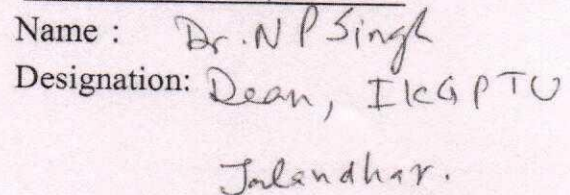 Name : Dr. N P Singh
Designation: Dean, IKGPTU
Jalandhar.